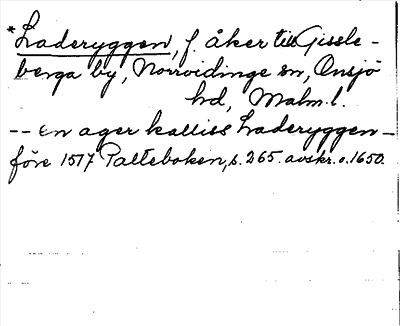 *Laderyggen, f. åker till Gissle-
berga by, Norrvidinge sn, Onsjö
hd, Malm. l.
-- En ager kalliss Laderyggen -
före 1517 Palteboken, s. 265. avskr. o. 1650.